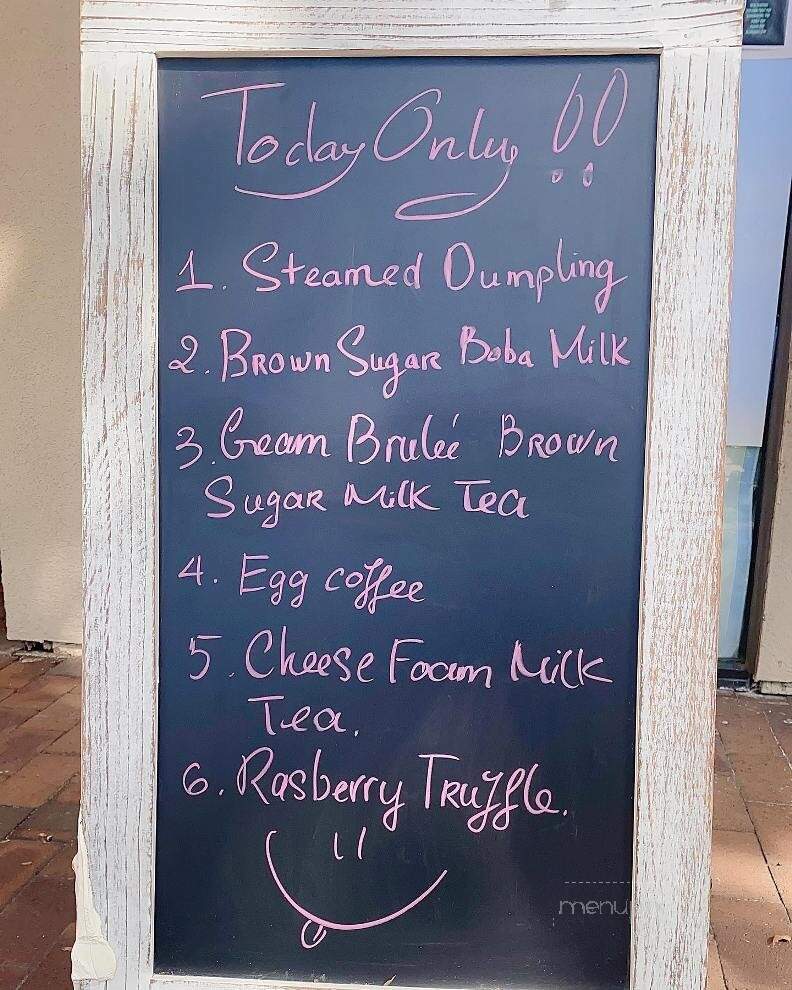 Today Only !!
1. Steamed Dumpling
2. Brown Sugar Boba Milk
3. Cream Bruleé Brown
Sugar Milk Tea
4. Egg coffee
5. Cheese Foam Milk
Tea.
6. Rasberry Truffle.
menu